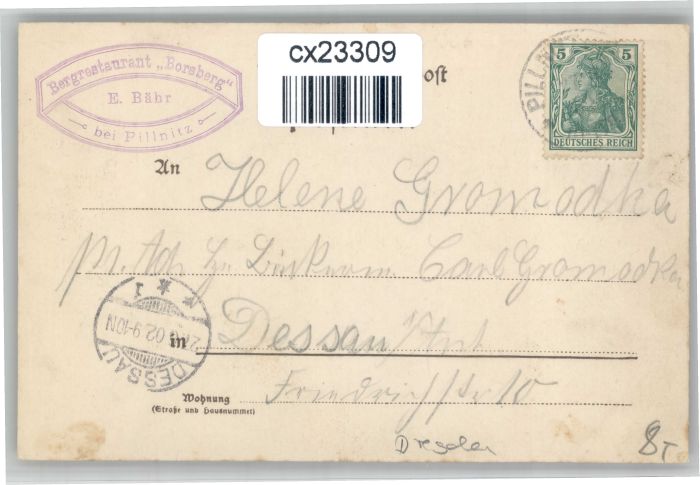 Bergrestaurant „Borsberg"
E. Bähr
bei Pillnitz
cx23309
ost
5 5
DEUTSCHES REICH
PILL
An Helene Gromodka
Carl Gromodka
in Dessau
02.9-10N
DESSAU
1
Wohnung
(Straße und Hausnummer)
Friedrichstr 10
Dresden
8,-